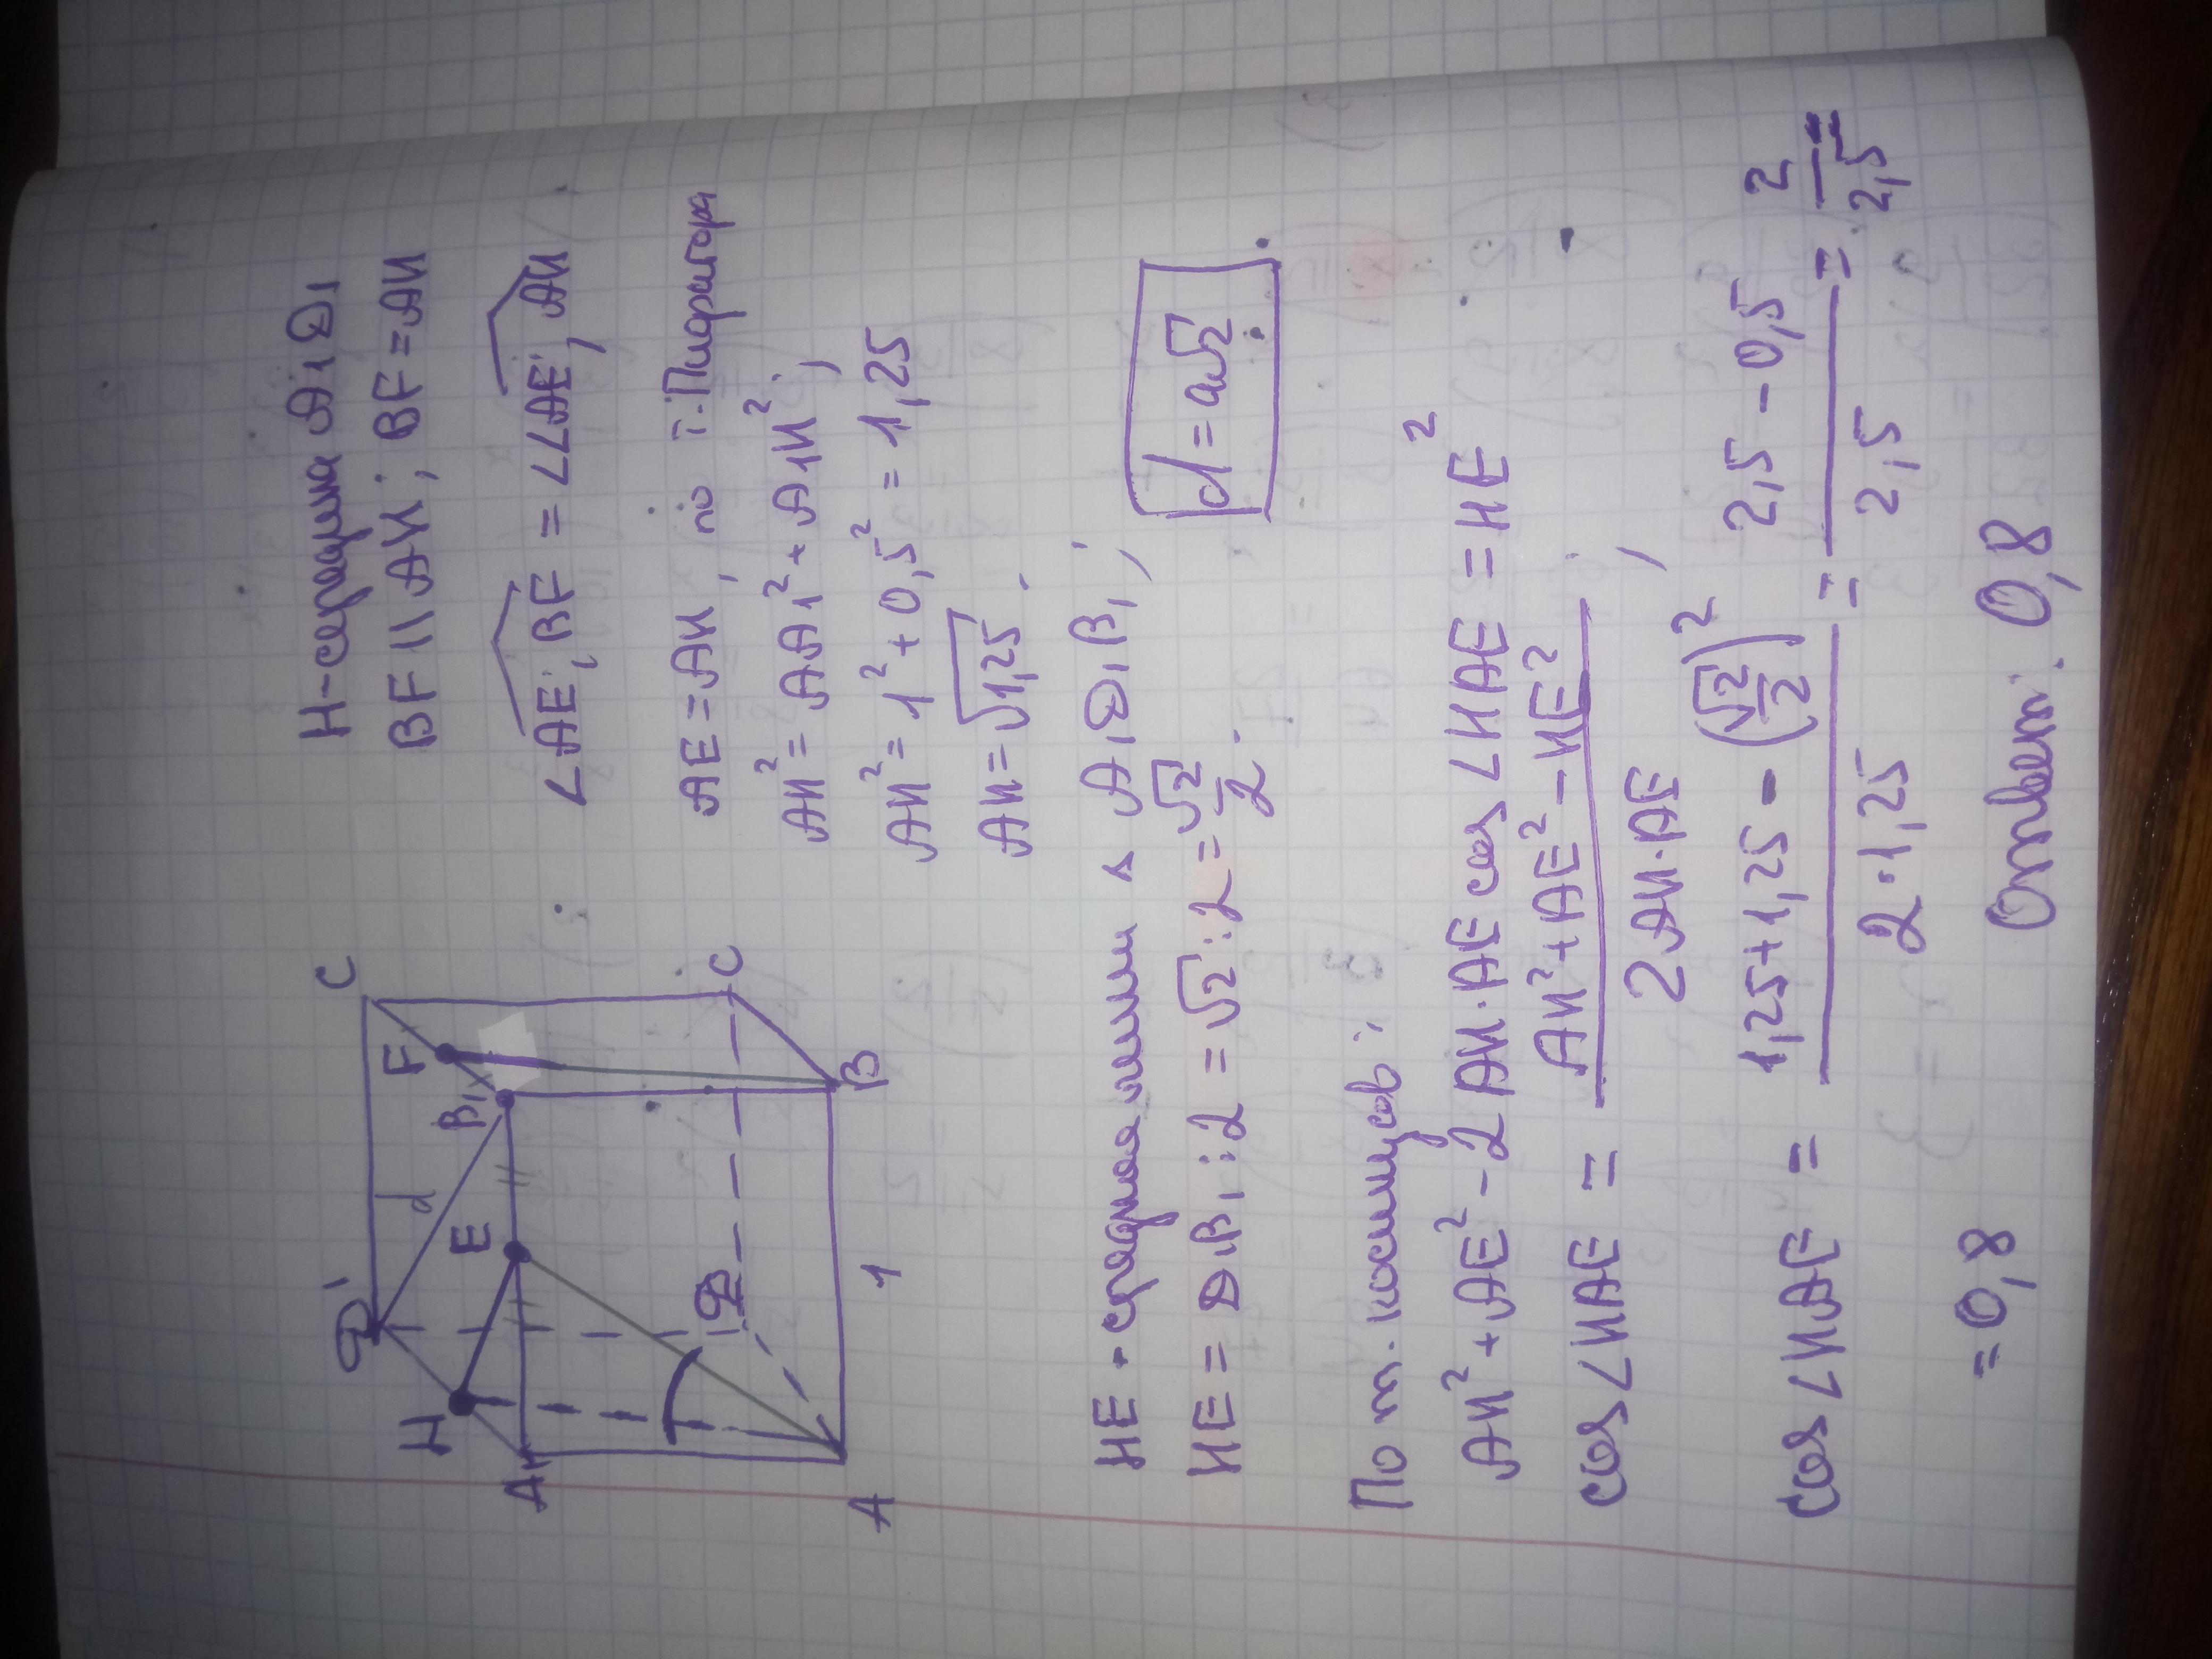 D1
C
H
F
d
E
B1
A1
D
C
A
1
B
H-середина A1D1
BF || AH; BF = AH
∠AE; BF = ∠∠AE; AH
AE = AH, по т. Пифагора
AH² = AA1² + A1H²;
AH² = 1² + 0,5² = 1,25
AH = √1,25.
HE - средняя линия ▵ A1D1B1;
HE = DB1:2 = √2:2 = √2/2.
d = a√2
По т. косинусов:
AH² + AE² - 2AH·AE cos∠HAE = HE²
cos∠HAE = (AH² + AE² - HE²)/(2AH·AE);
cos∠HAE = (1,25+1,25 - (√2/2)²)/(2·1,25) = (2,5-0,5)/2,5 = 2/2,5 =
= 0,8
Ответ: 0,8